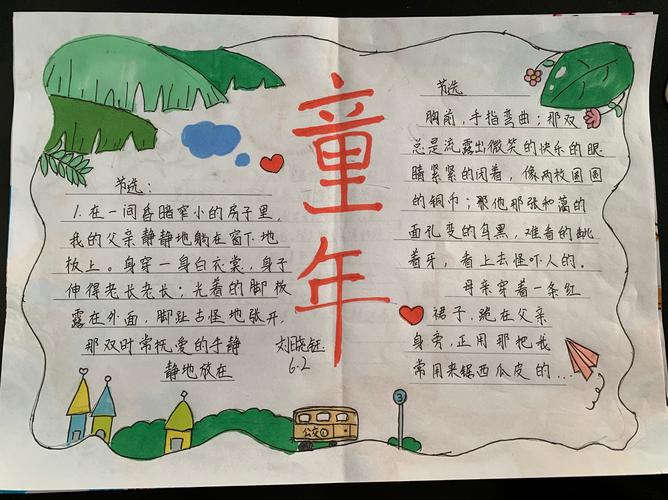 童年
节选：
1.在一间昏暗窄小的房子里，
我的父亲静静地躺在窗下地
板上。身穿一身白衣裳，身子
伸得老长老长；光着的脚板
露在外面，脚趾古怪地张开，
那双时常抚爱的手静
静地放在
刘晓钰
6.2
节选
胸前，手指弯曲；那双
总是流露出微笑的快乐的眼
睛紧紧的闭着，像两枚圆圆
的铜币；聚他那张和蔼的
面孔变的乌黑，难看的龇
着牙，看上去怪吓人的。
母亲穿着一条红
裙子，跪在父亲
身旁，正用那把我
常用来锯西瓜皮的...
公交①
3